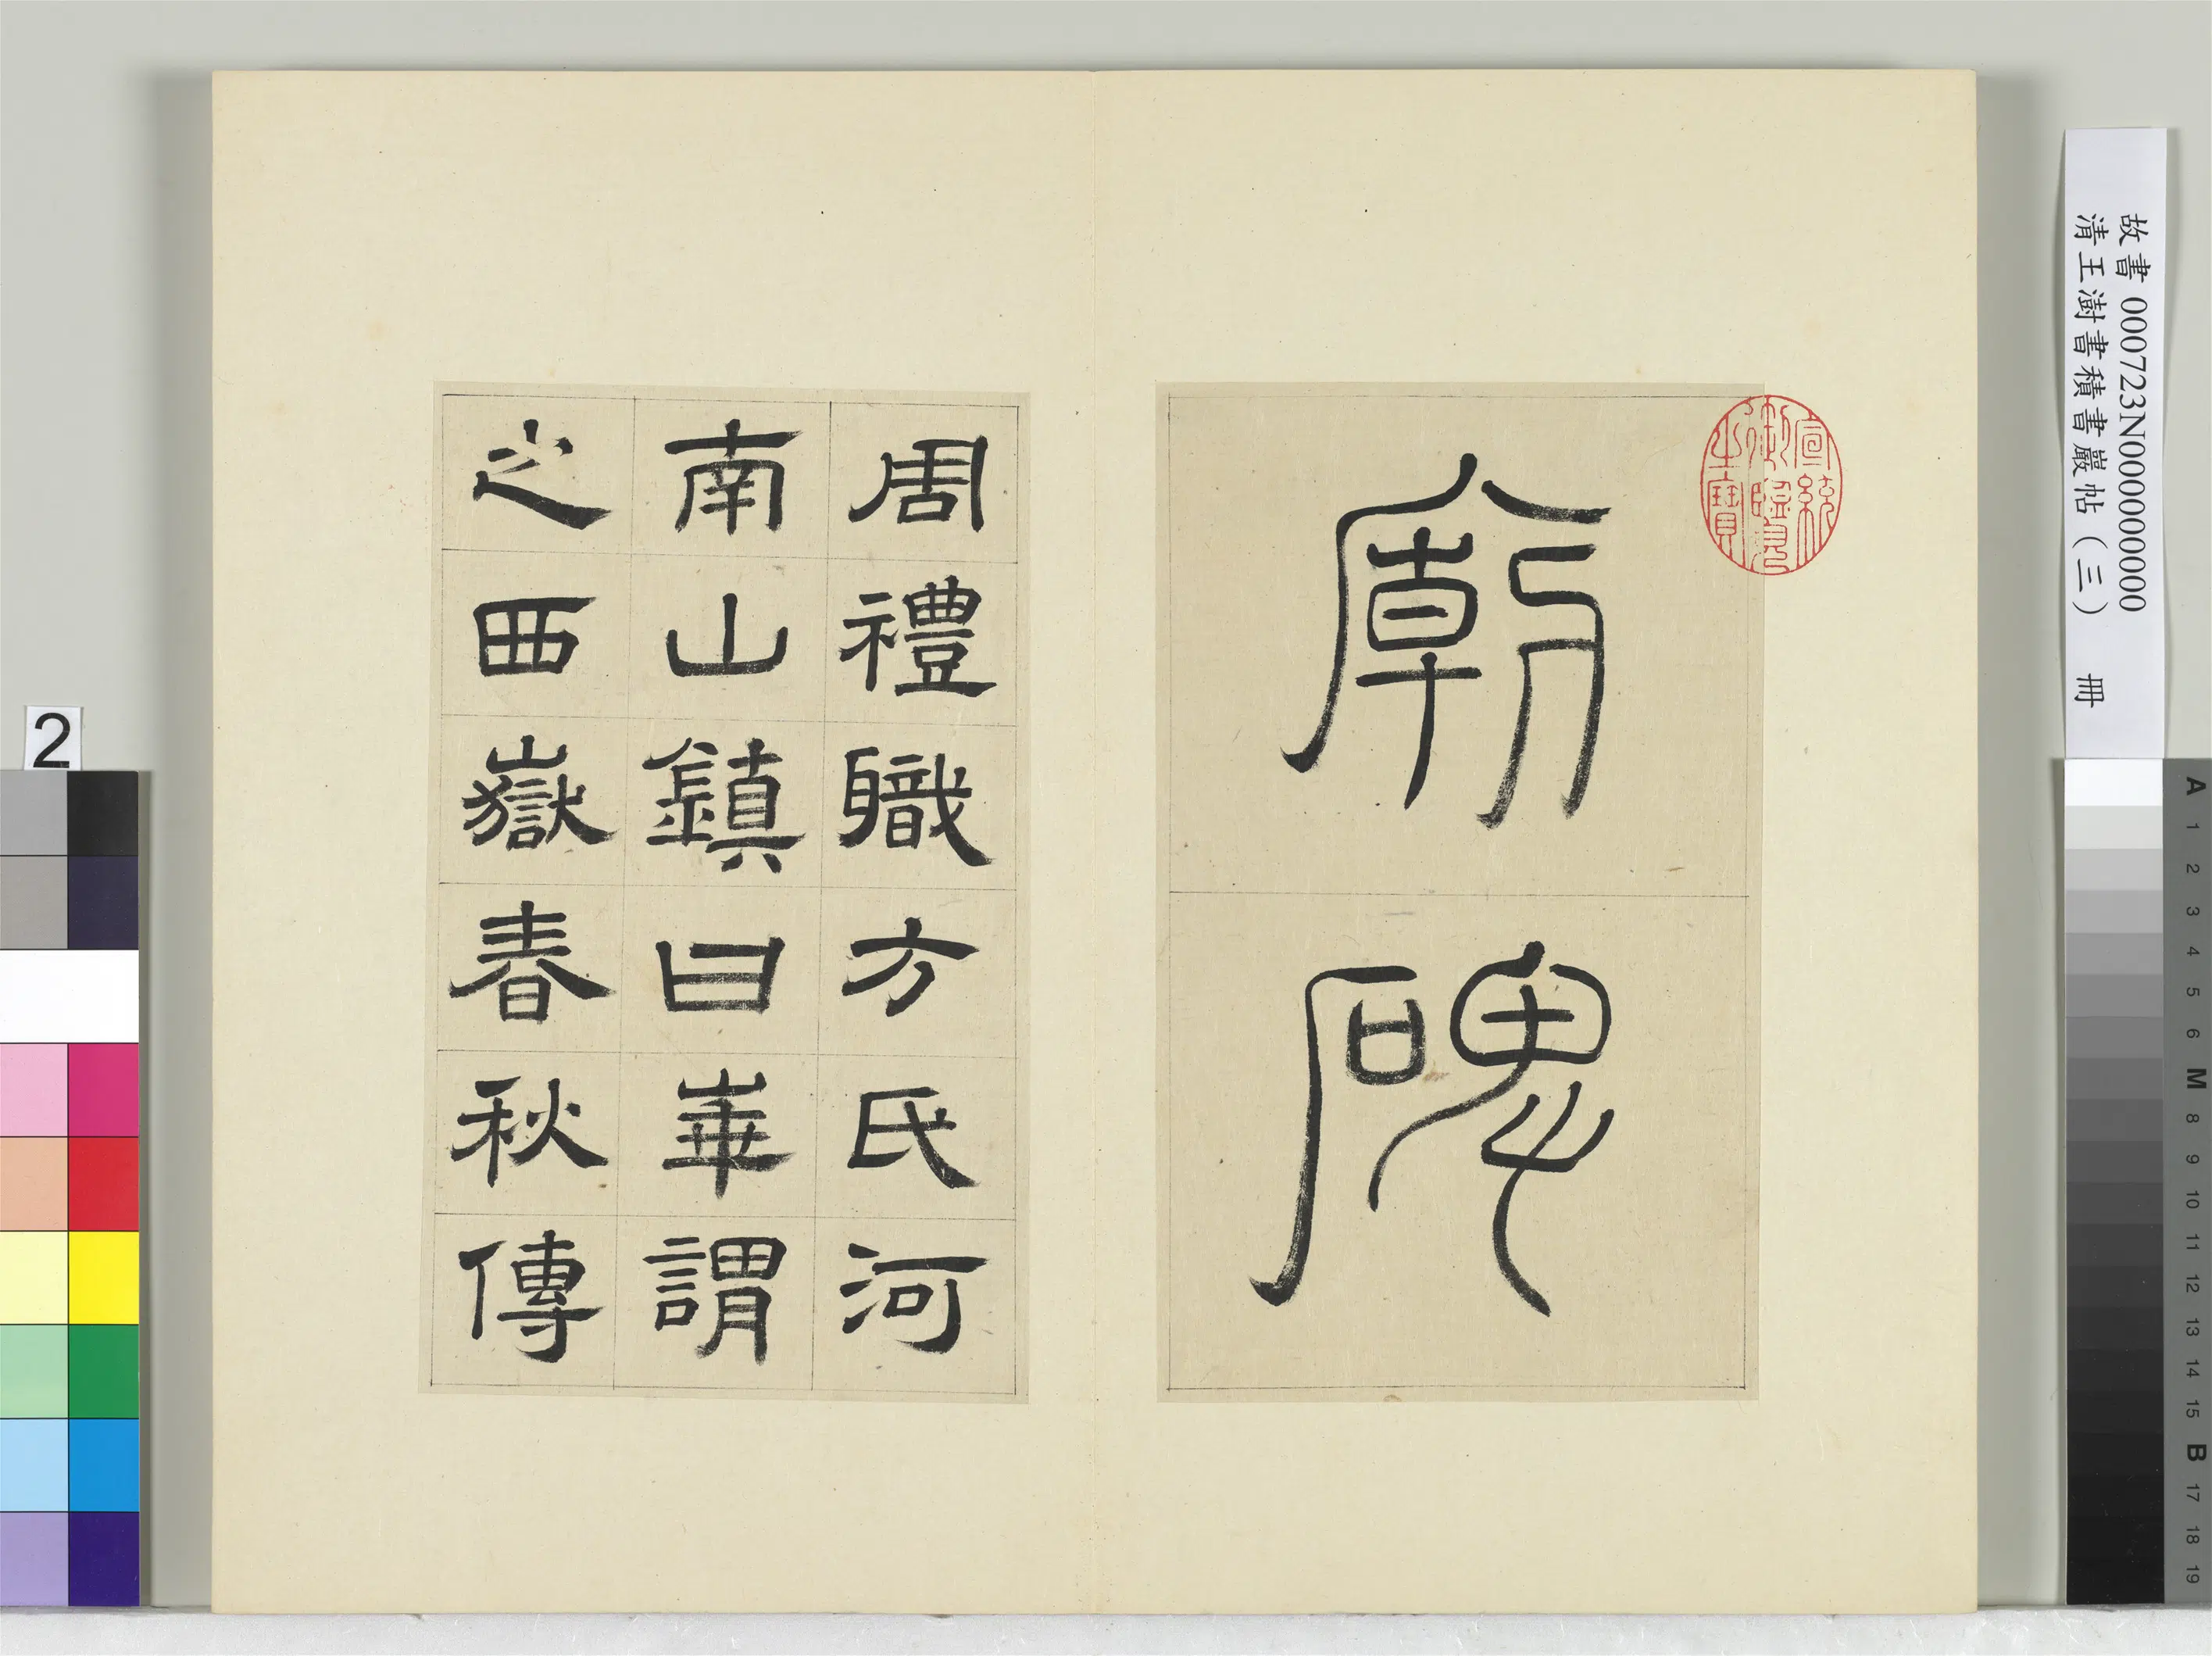 廟碑
周禮職方氏河
南山鎮曰華謂
之西嶽春秋傳
宣統御覽之寶
故書 000723N000000000
清王澍書積書巖帖（三） 冊
2
A 1 2 3 4 5 6 M 8 9 10 11 12 13 14 15 B 17 18 19